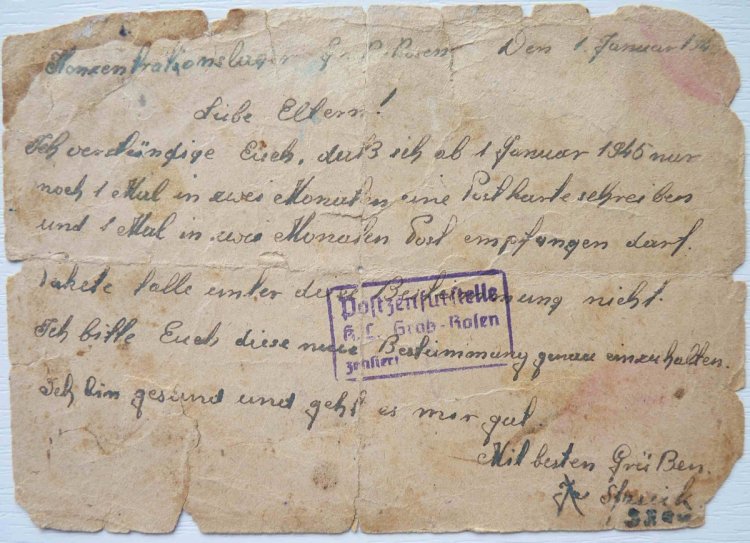 Konzentrationslager Gr. Rosen Den 1. Januar 194
Liebe Eltern!
Ich verkündige Euch, daß ich ab 1 Januar 1945 nur
noch 1 Mal in zwei Monaten eine Postkarte schreiben
und 1 Mal in zwei Monaten Post empfangen darf.
Pakete falle unter dem nicht.
Postzensurstelle
K.L. Groß-Rosen
zensiert
Ich bitte Euch diese neue Bestimmung genau einzuhalten.
Ich bin gesund und geht es mir gut.
Mit besten Grüßen.